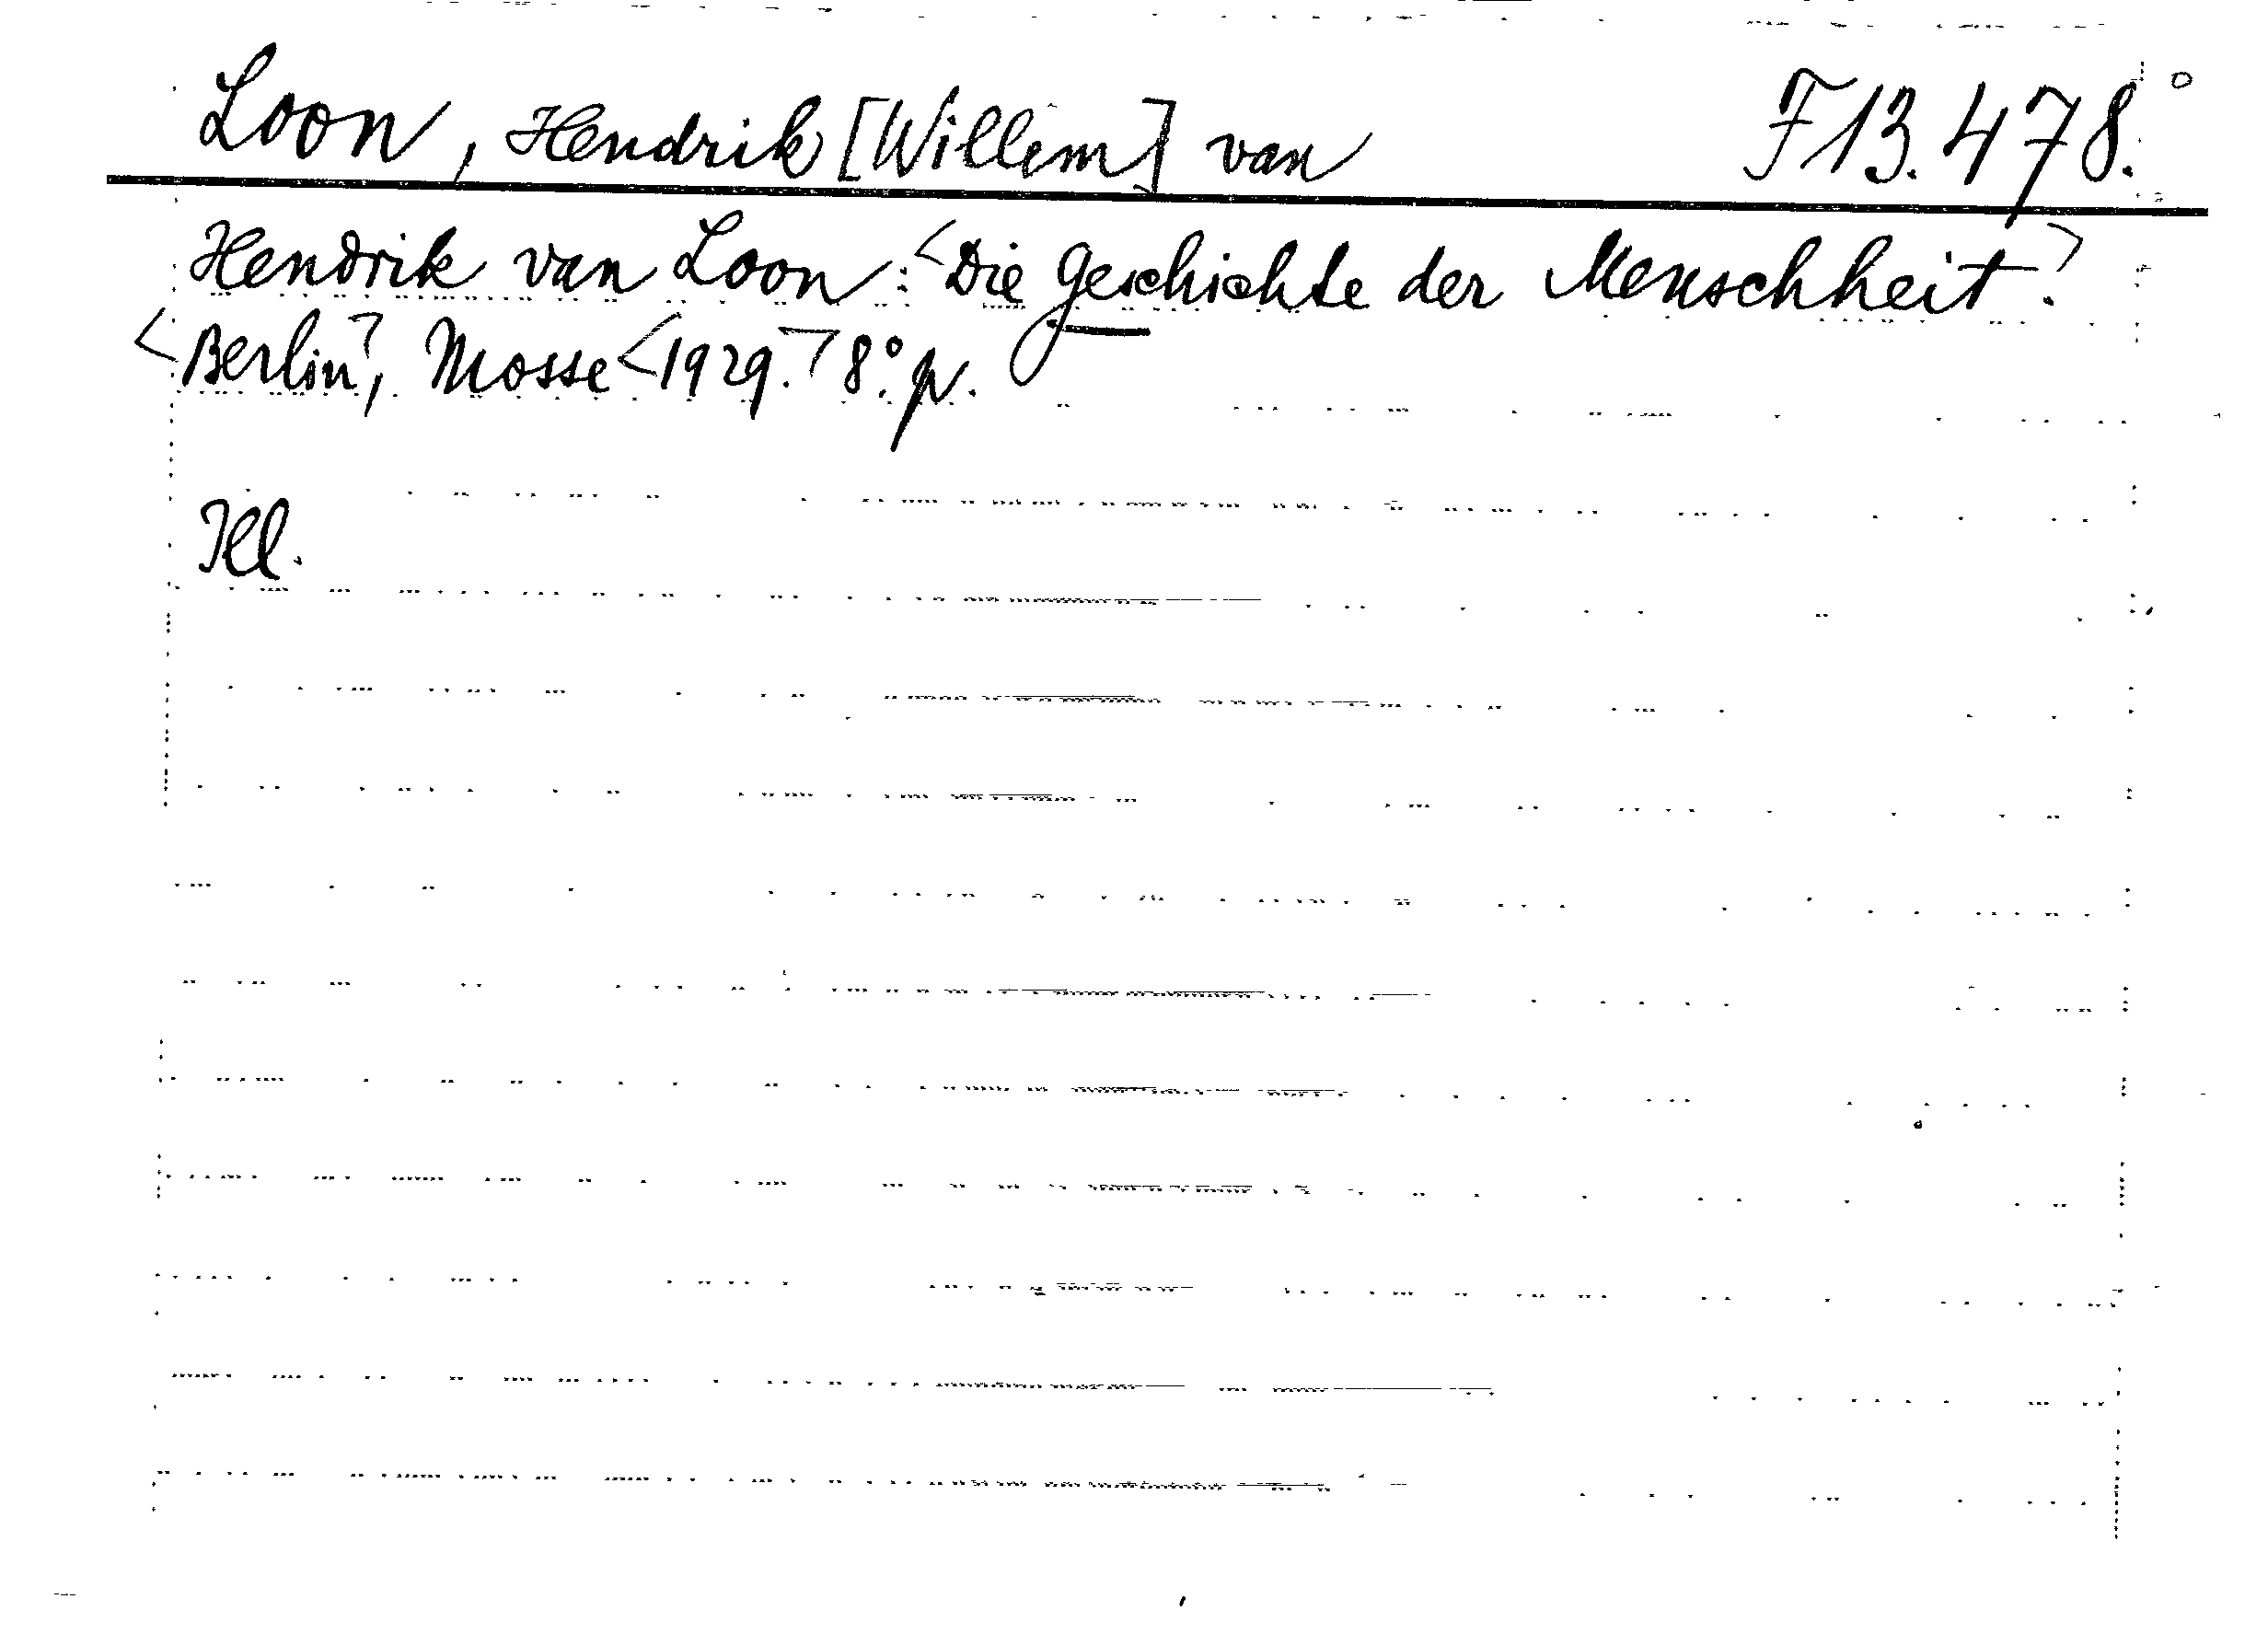 Loon, Hendrik [Willem] van F 13.478.°
Hendrik van Loon: <Die Geschichte der Menschheit.>
<Berlin>, Mosse <1929.> 8.° p.
Ill.